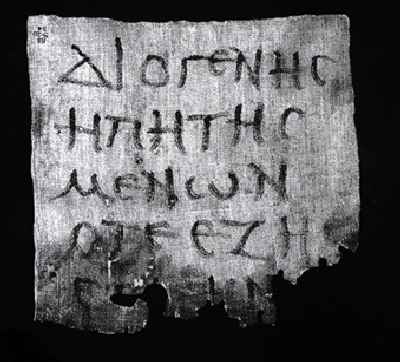 ΔΙΟΓΕΝΗϹ
ΗΠΗΤΗϹ
ΜΕΝ ΩΝ
ΟΤΕ ΕΖΗ